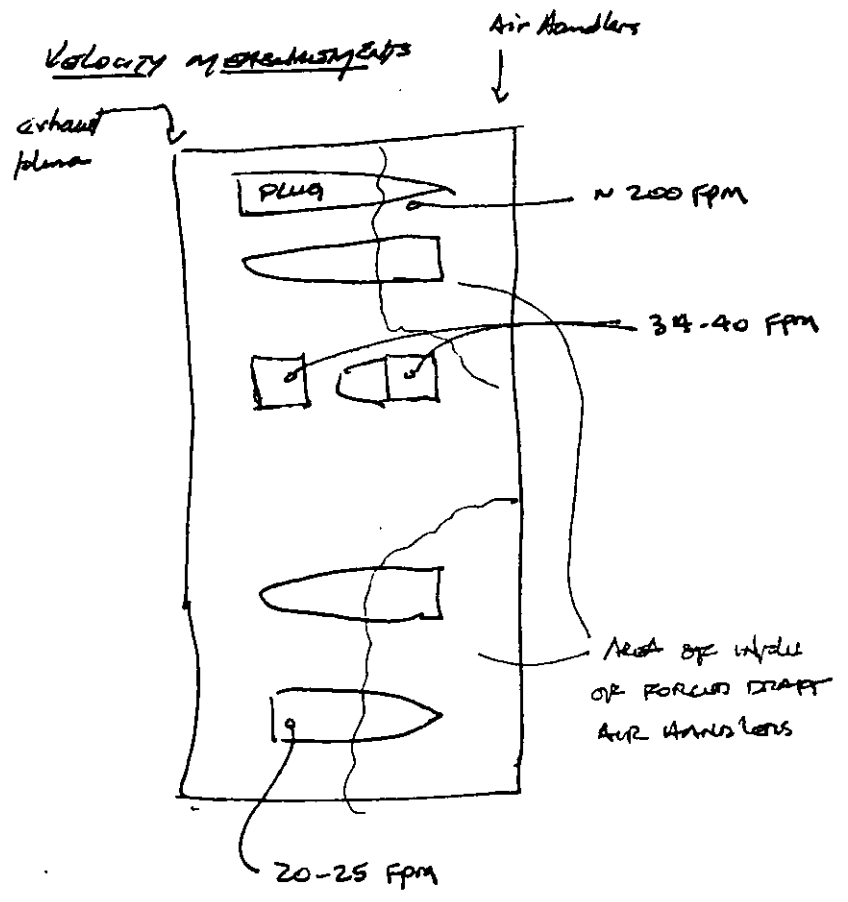 Air Handlers
VELOCITY MEASUREMENTS
exhaust
plenum
PLUG
~ 200 FPM
34-40 FPM
AREA OF
OF FORCED DRAFT
AIR HANDLERS
20-25 FPM